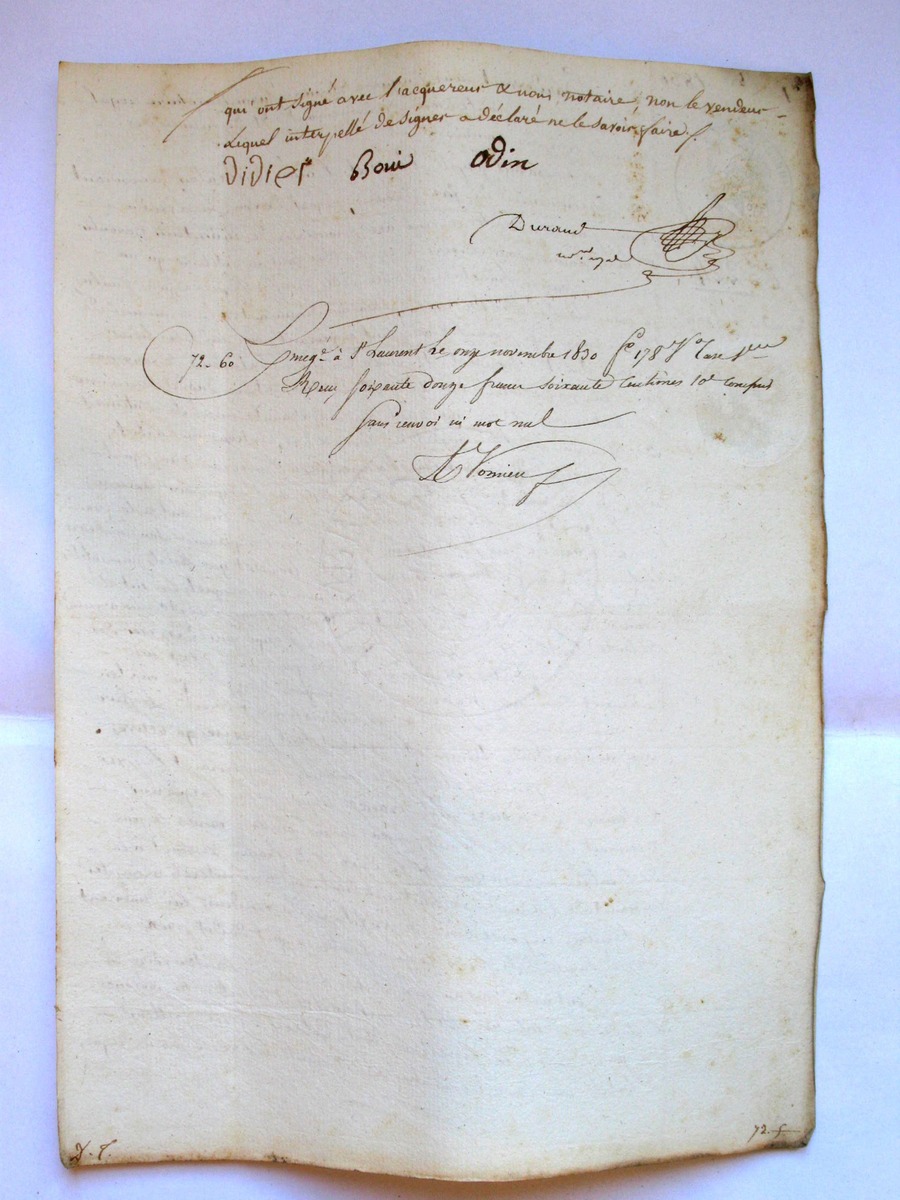 qui ont signé avec l'acquereur & nous notaire, non le vendeur
Lequel interpellé de signer a déclaré ne le savoir faire
Didier Boui Odin
Durand
72-60
Enregé à St Laurent Le onze novembre 1830 fo 178 Vo Case
Reçu soixante douze francs soixante Centimes 10e compris
Sans renvoi ni mot nul
72-5-